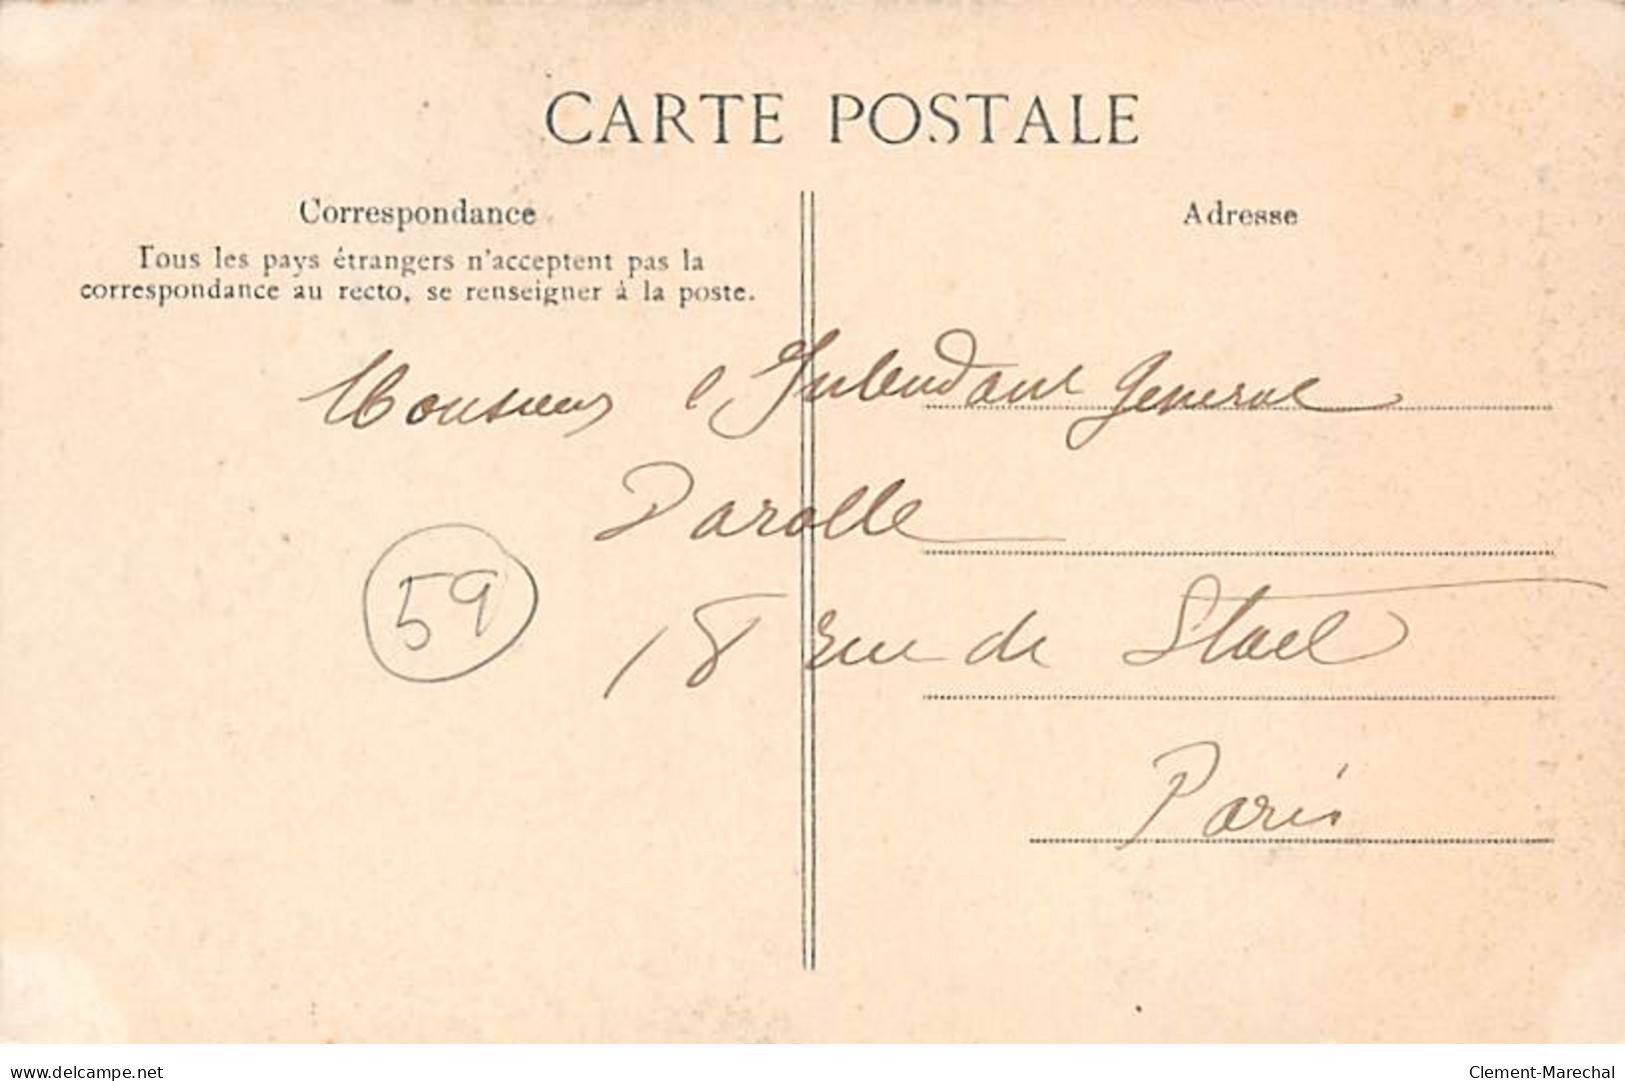 CARTE POSTALE
Correspondance
Tous les pays étrangers n'acceptent pas la
correspondance au recto, se renseigner à la poste.
Adresse
Monsieur l'Intendant General
Darolle
18 rue de Stael
Paris
59
www.delcampe.net
Clement-Marechal